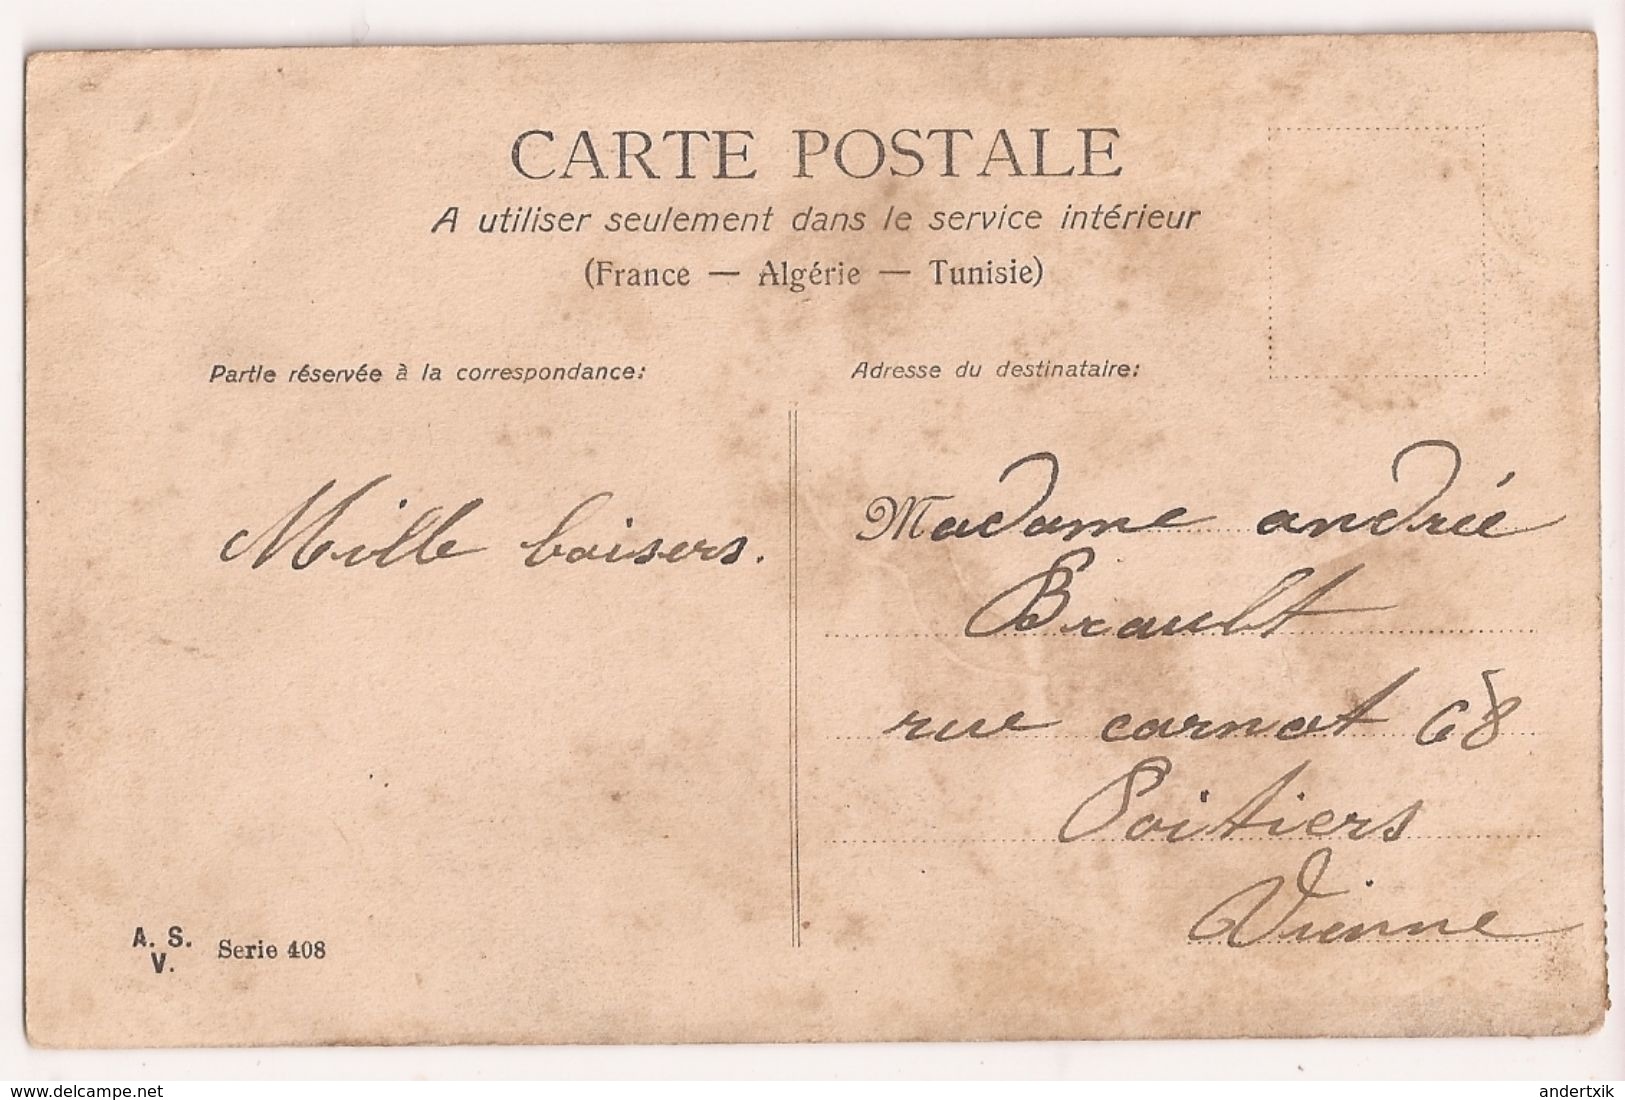 CARTE POSTALE
A utiliser seulement dans le service intérieur
(France — Algérie — Tunisie)
Partie réservée à la correspondance:
Adresse du destinataire:
Mille baisers.
Madame andrée
Brault
rue carnot 68
Poitiers
Vienne
A. S.
V.
Serie 408
www.delcampe.net
andertxik